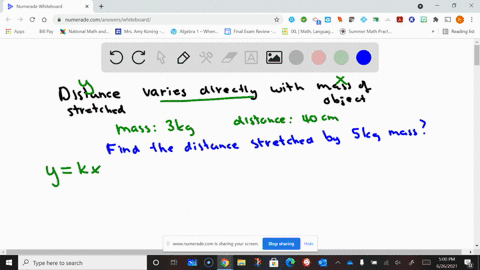 Numerade Whiteboard
numerade.com/answers/whiteboard/
Apps
Bill Pay
National Math and...
Mrs. Amy Koning -...
Algebra 1 – Wheno...
Final Exam Review -...
IXL | Math, Languag...
Summer Math Pract...
Reading list
y
x
Distance varies directly with mass of
stretched
object
mass: 3kg
distance: 40cm
Find the distance stretched by 5kg mass?
y = kx
www.numerade.com is sharing your screen.
Stop sharing
Hide
Type here to search
5:00 PM
6/26/2021